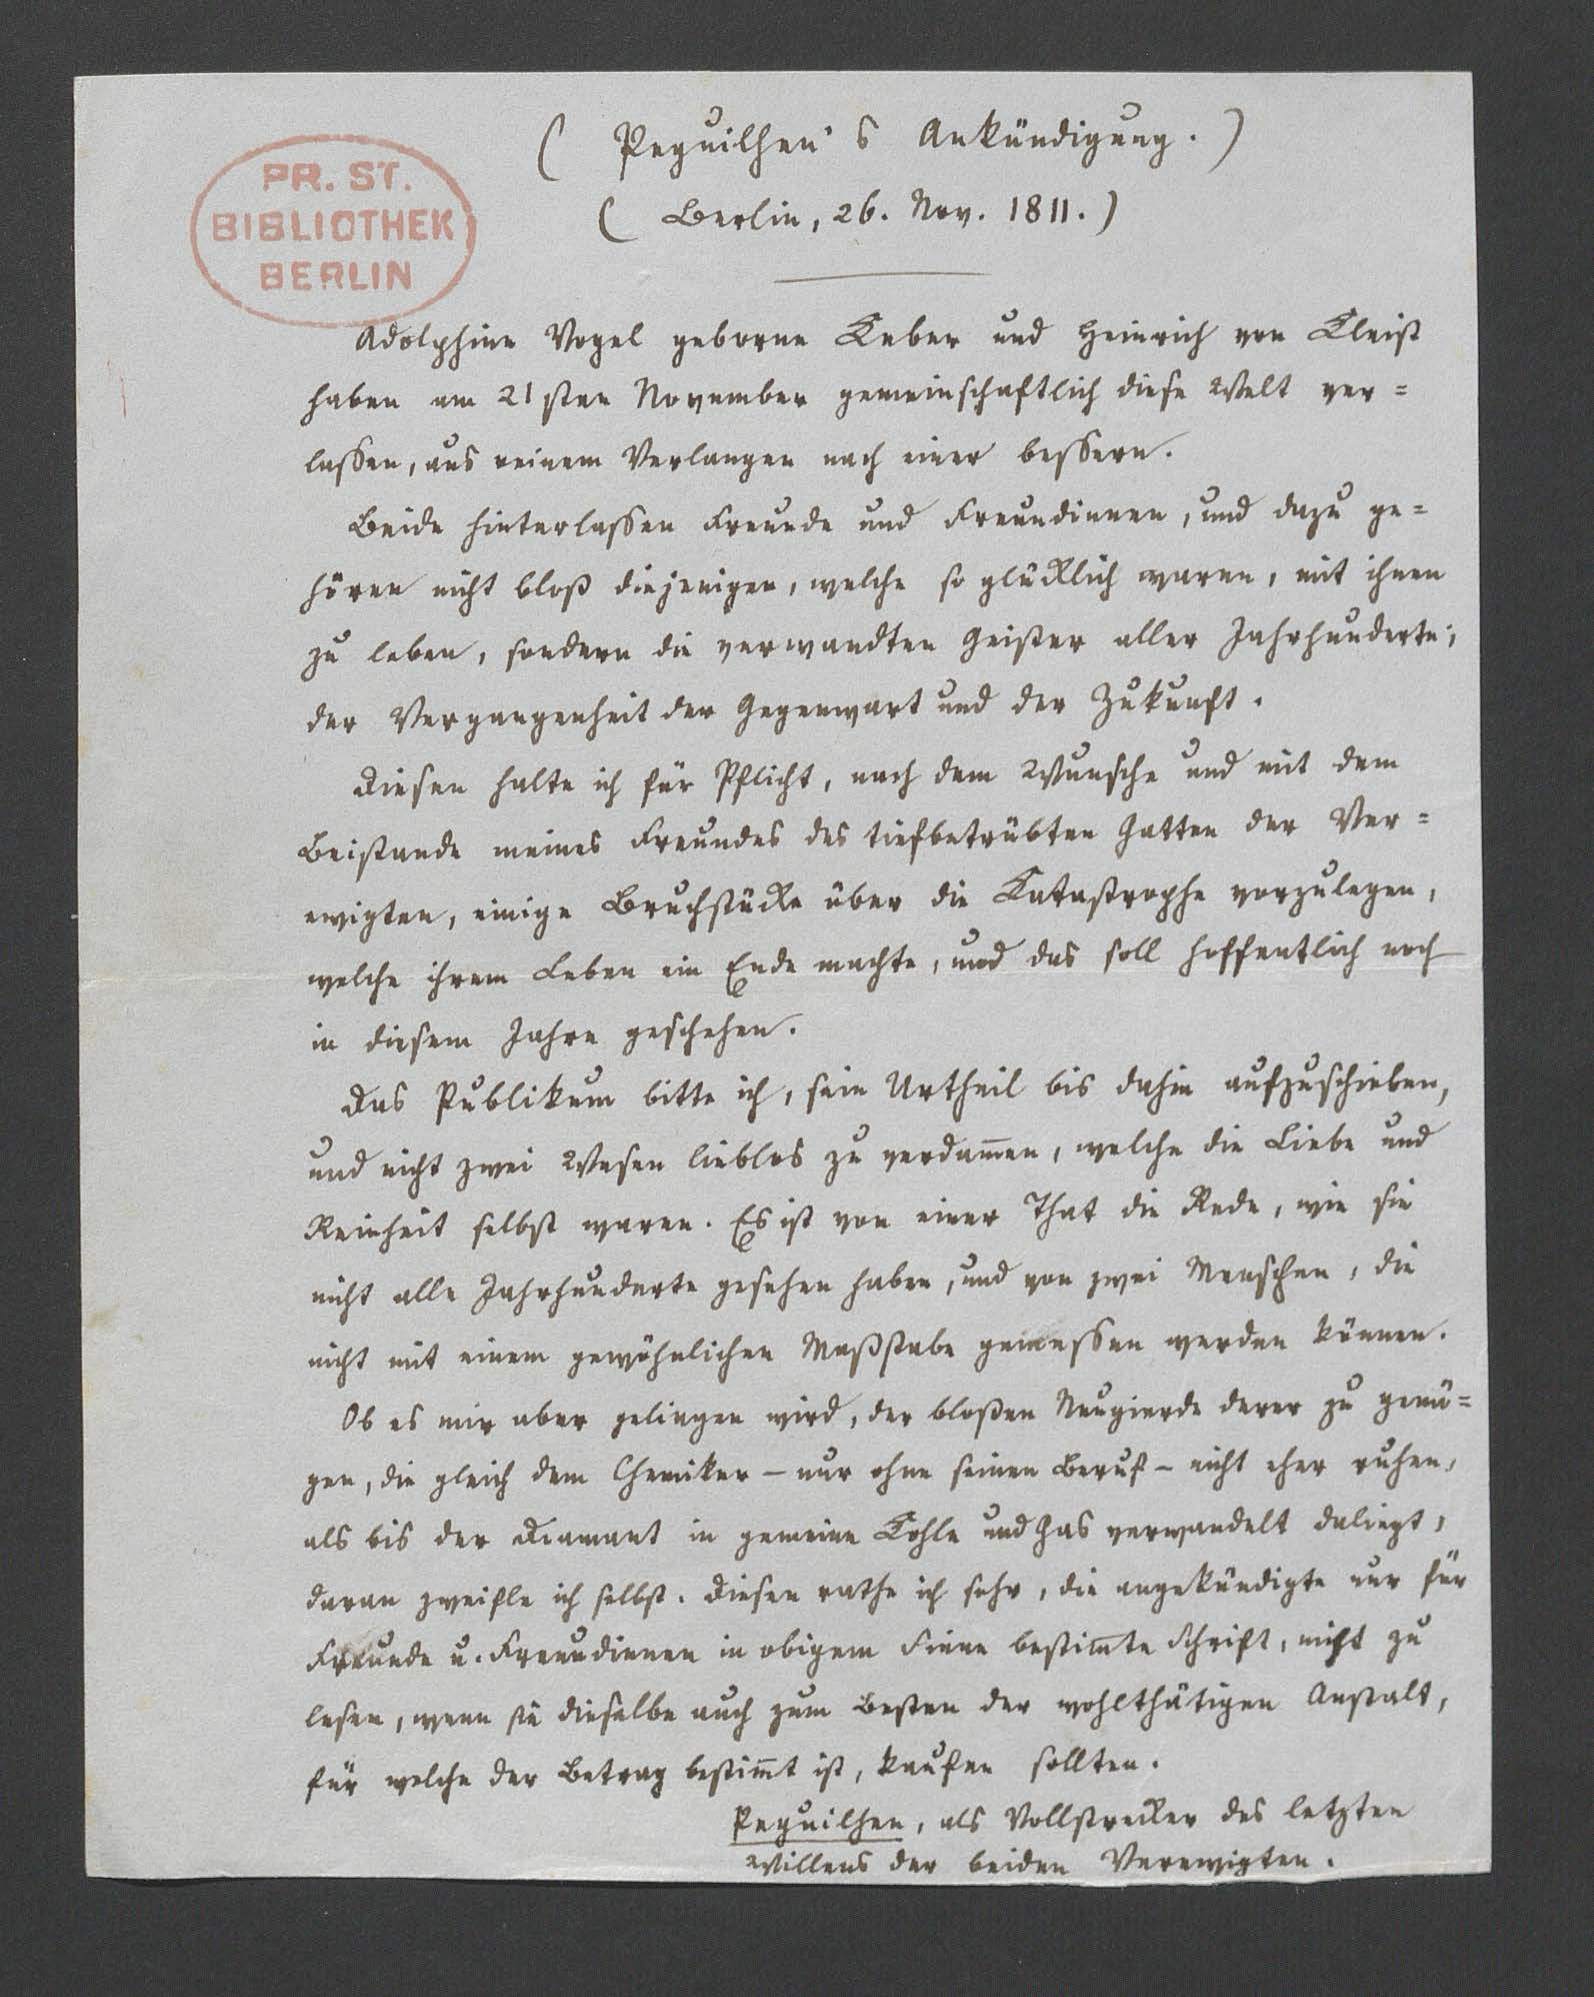 ( Peguilhen's Ankündigung. )
( Berlin, 26. Nov. 1811. )
PR. ST.
BIBLIOTHEK
BERLIN
Adolphine Vogel geborne Keber und Heinrich von Kleist
haben am 21sten November gemeinschaftlich diese Welt ver=
lassen, aus reinem Verlangen nach einer bessern.
Beide hinterlassen Freunde und Freundinnen, und dazu ge=
hören nicht bloß diejenigen, welche so glücklich waren, mit ihnen
zu leben, sondern die verwandten Geister aller Jahrhunderte,
der Vergangenheit der Gegenwart und der Zukunft.
Diesen halte ich für Pflicht, nach dem Wunsche und mit dem
Beistande meines Freundes des tiefbetrübten Gatten der Ver=
ewigten, einige Bruchstücke über die Katastrophe vorzulegen,
welche ihrem Leben ein Ende machte, und das soll hoffentlich noch
in diesem Jahre geschehen.
Das Publikum bitte ich, sein Urtheil bis dahin aufzuschieben,
und nicht zwei Wesen lieblos zu verdam̄en, welche die Liebe und
Reinheit selbst waren. Es ist von einer That die Rede, wie sie
nicht alle Jahrhunderte gesehen haben, und von zwei Menschen, die
nicht mit einem gewöhnlichen Maßstabe gemessen werden können.
Ob es mir aber gelingen wird, der bloßen Neugierde derer zu genü=
gen, die gleich dem Chemiker – nur ohne seinen Beruf – nicht eher ruhen,
als bis der Diamant in gemeine Kohle und Gas verwandelt daliegt,
daran zweifle ich selbst. Diesen rathe ich sehr, die angekündigte nur für
Freunde u. Freundinnen in obigem Sinne bestim̄te Schrift, nicht zu
lesen, wenn sie dieselbe auch zum Besten der wohlthätigen Anstalt,
für welche der Betrag bestim̄t ist, kaufen sollten.
Peguilhen, als Vollstrecker des letzten
Willens der beiden Verewigten.